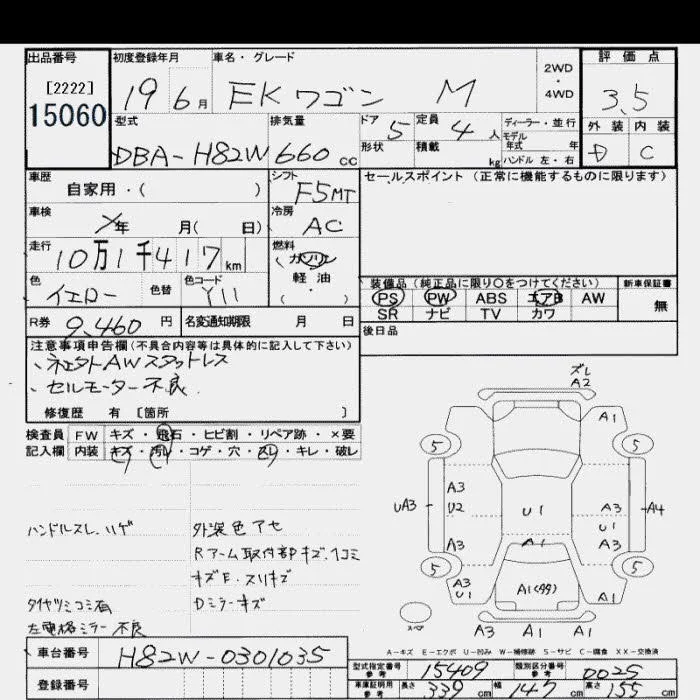 出品番号 初度登録年月 車名・グレード 2WD・4WD 評価点
[2222] 19 6月 EKワゴン M 3.5
15060
型式 排気量 ドア 5 定員 4人 ディーラー・並行 外装 内装
形状 積載 kg モデル年式 年
DBA-H82W 660cc ハンドル 左・右 D C
車歴 シフト セールスポイント(正常に機能するものに限ります)
自家用・( ) F5MT
車検 年 月( 日) 冷房 AC
走行 燃料
10万1千417km ガソリン
軽油
( ・ )
色 イエロー 色替 色コード Y11
装備品(純正品に限り○をつけてください) 新車保証書
PS PW ABS エアB AW 無
SR ナビ TV カワ
R券 9,460円 名変通知期限 月 日 後日品
注意事項申告欄(不具合内容等は具体的に記入して下さい)
、社外AWスタットレス
、セルモーター不良
修復歴 有 [箇所 ]
検査員 FW キズ・飛石・ヒビ割・リペア跡・×要
記入欄 内装 キズ・汚レ・コゲ・穴・スレ・キレ・破レ
ハンドルスレ、ハゲ 外装色アセ
Rアーム取付部キズ、凹コミ
キズE・スリキズ
タイヤツミコミ有 Dミラーキズ
左電格ミラー不良
ズレ
A2
A1
5 5
A3
UA3 U2 U1 A3 A4
U1
A3 A1 A3
5 5
A3
U1 A1 A1
スペア
A3 A1 A1
A-キズ E-エクボ U-凹み W-補修跡 S-サビ C-腐食 XX-交換済
車台番号 H82W-0301035
登録番号
型式指定番号 参考 15409 類別区分番号 参考 0025
車庫証明用 参考 長さ 339cm 幅 147cm 高さ 155cm